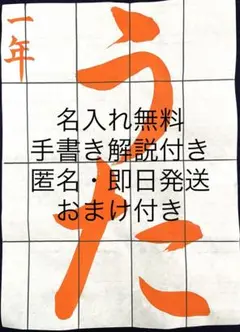 一年
うた
名入れ無料
手書き解説付き
匿名・即日発送
おまけ付き